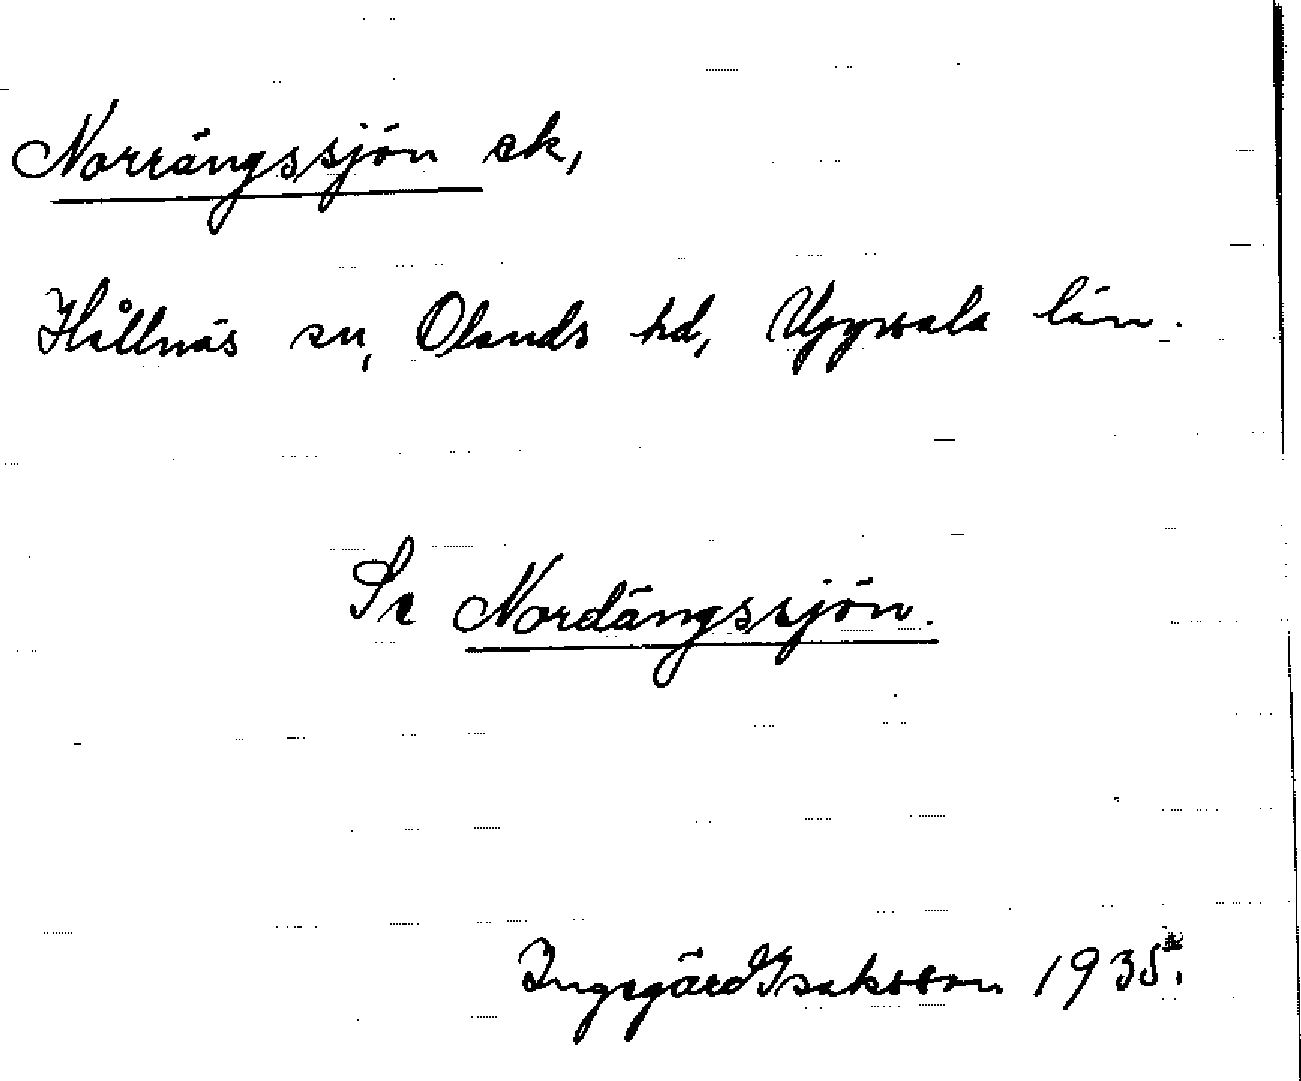 Norrängssjön ak,
Hållnäs sn, Olands hd, Uppsala län.
Se Nordängssjön.
Ingegärd Isaksson 1935.